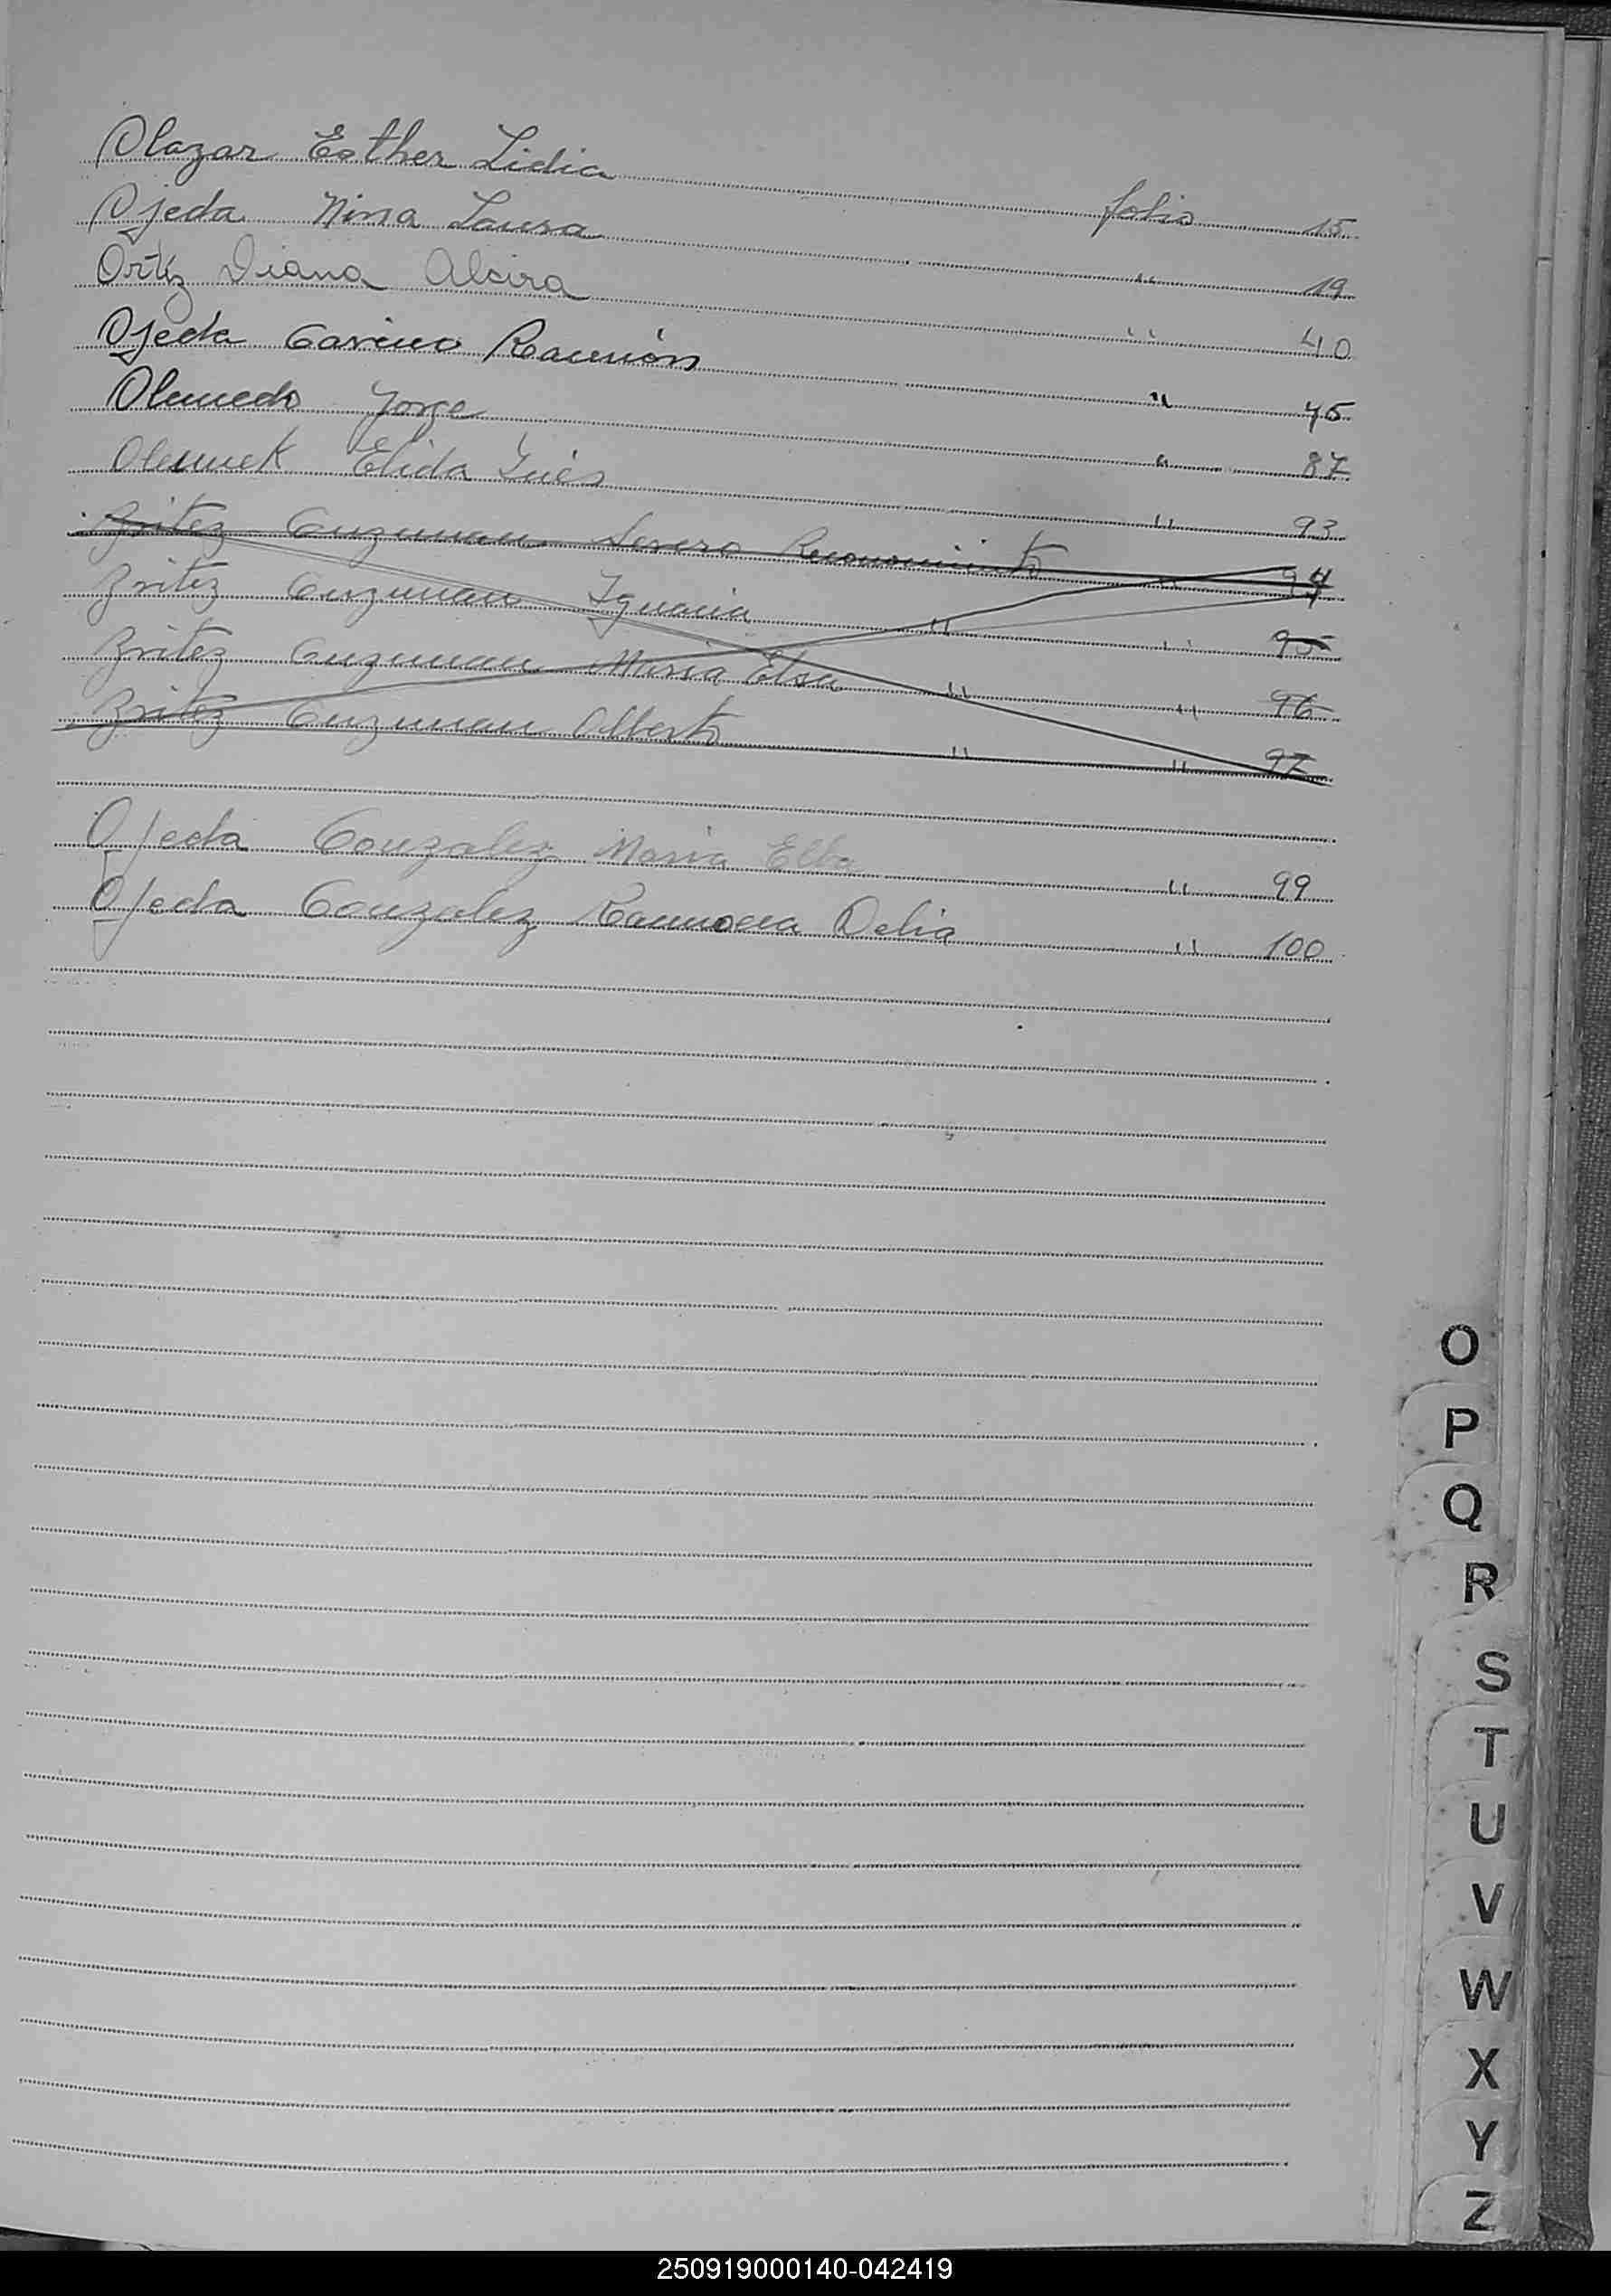 Olazar Esther Lidia folio 15
Ojeda Nina Laura " 19
Ortíz Diana Alcira " 40
Ojeda Ramón " 75
Olmedo Jorge " 87
Elida Inés " 93
Britez Guzman Severo Reconocimiento " 94
Britez Guzman Ignacia " " 95
Britez Guzman Maria Elsa " " 96
Britez Guzman Alberto " " 97
Ojeda Gonzalez Maria Elba " 99
Ojeda Gonzalez Ramona Delia " 100
O
P
Q
R
S
T
U
V
W
X
Y
Z
250919000140-042419